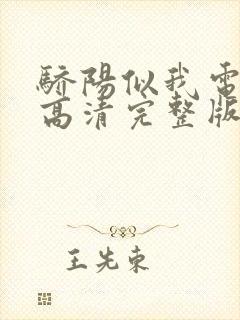 驕陽似我電
高清完整版
王先東